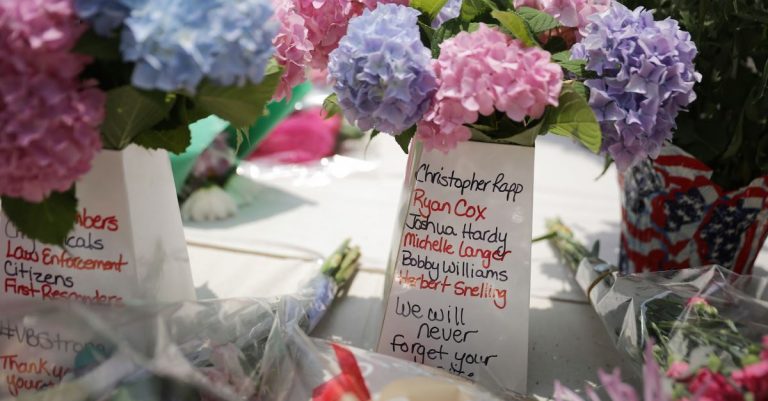 mbers
cals
Law Enforcement
Citizens
First Responders
#VBStrong
Thank you
Christopher Rapp
Ryan Cox
Joshua Hardy
Michelle Langer
Bobby Williams
Herbert Snelling
We will
never
forget your